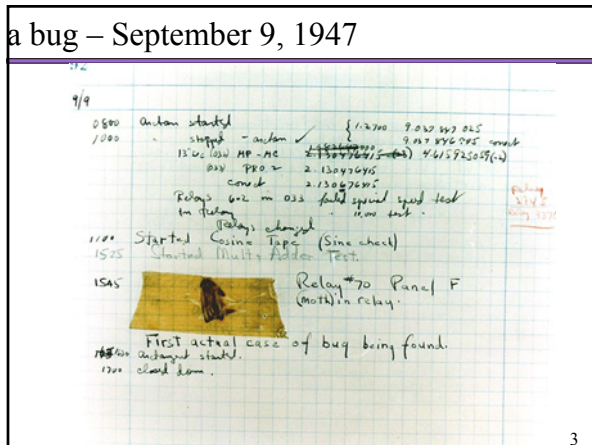 a bug – September 9, 1947
92
9/9
0800 antan started
1000 " stopped - antan ✓ { 1.2700 9.037 847 025
9.037 846 995 correct
13"uc (032) MP - MC 2.130476415 (-3) 4.615925059(-2)
(033) PRO 2 2.130476415
correct 2.130676415
Relays 6-2 in 033 failed special speed test
in relay " 11.000 test.
Relay
3370
Relays changed
1100 Started Cosine Tape (Sine check)
1525 Started Mult + Adder Test.
1545 Relay #70 Panel F
(moth) in relay.
First actual case of bug being found.
1630 antangent started.
1700 closed down.
3